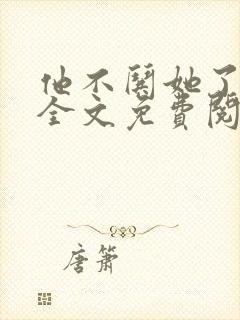 他不关她了
全文免费阅
唐箫